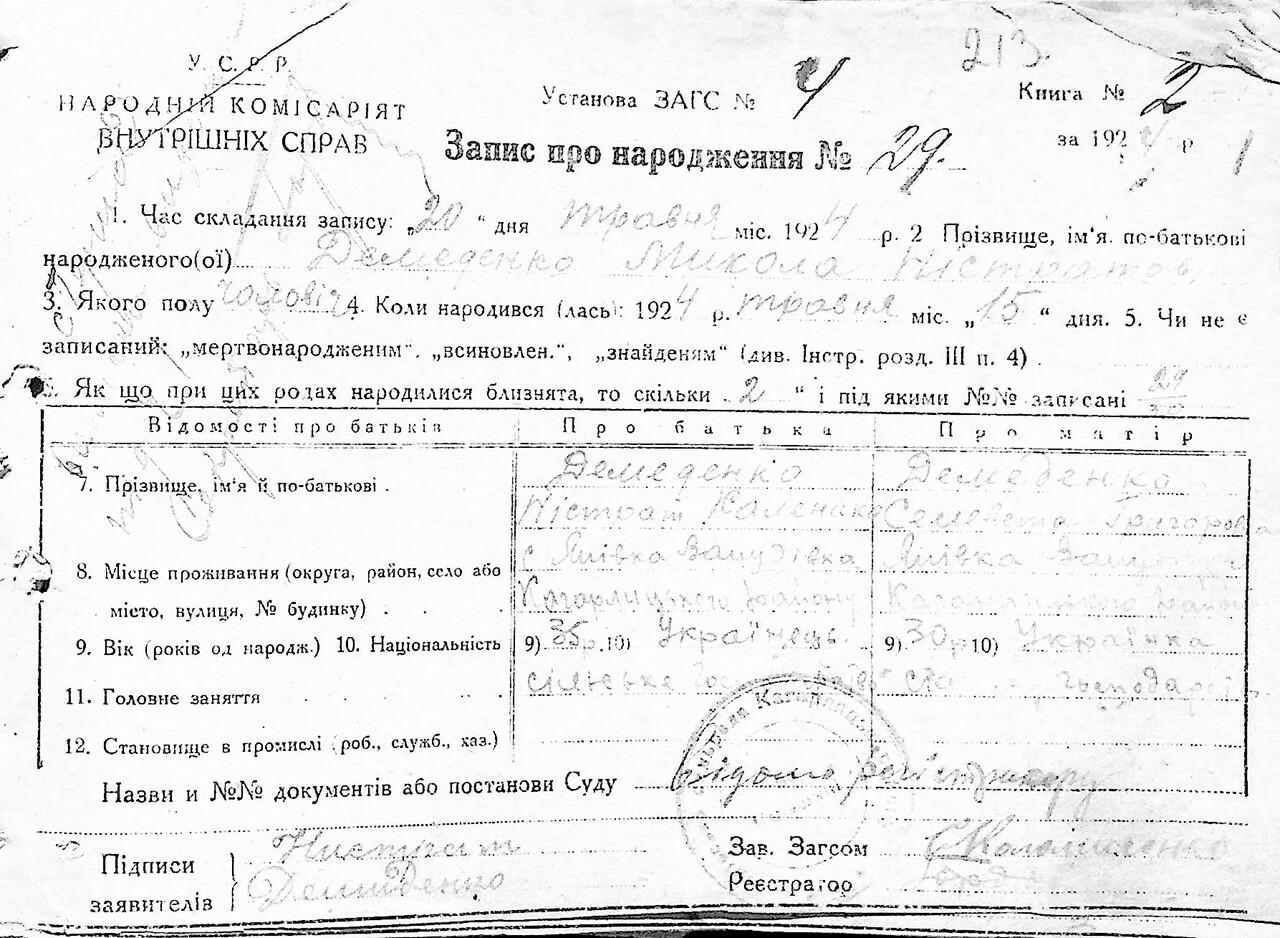 213.
У. С. Р. Р.
НАРОДНІЙ КОМІСАРІЯТ
ВНУТРІШНІХ СПРАВ
Установа ЗАГС № 4
Книга № 2
за 1924 р
Запис про народження № 29.
1. Час складання запису: „20 “ дня травня міс. 1924 р. 2 Прізвище, ім‘я. по-батькові
народженого(ої) Демеденко Микола Ністратов
3. Якого полу чоловіч 4. Коли народився (лась): 1924 р. травня міс. „15 “ дня. 5. Чи не є
записаний: „мертвонародженим“. „всиновлен.“, „знайденям“ (див. Інстр. розд. III п. 4) .
6. Як що при цих родах народилися близнята, то скільки „2 “ і під якими №№ записані 29/30
Відомості про батьків Про батька Про матір
7. Прізвище, ім‘я й по-батькові . Демеденко Демеденко
Ністрат Каленико Семевста Григоровна
8. Місце проживання (округа, район, село або с Янівка Янівка
місто, вулиця, № будинку) . . . Кагорлицького району Кагарлицького району
9. Вік (років од народж.) 10. Національність 9) 35 р. 10) Українець 9) 30 р 10) Українка
11. Головне заняття сільське господарс
12. Становище в промислі (роб., служб., хаз.)
Назви и №№ документів або постанови Суду відомо регістратору
Підписи
заявителів
Нистрат
Демиденко
Зав. Загсом Коломиенко
Реєстратор